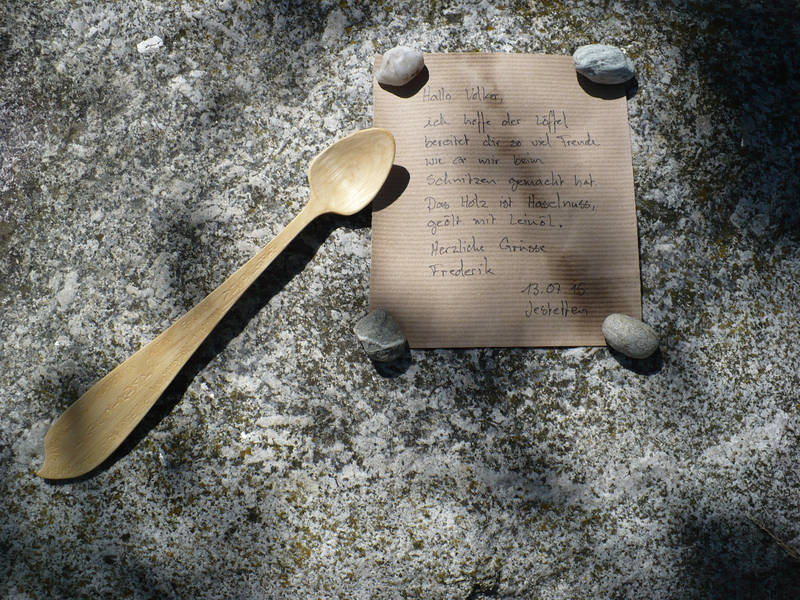 Hallo Volker,
ich hoffe der Löffel
bereitet dir so viel Freude
wie er mir beim
Schnitzen gemacht hat.
Das Holz ist Haselnuss,
geölt mit Leinöl.
Herzliche Grüsse
Frederik
13.07.15
Jestetten